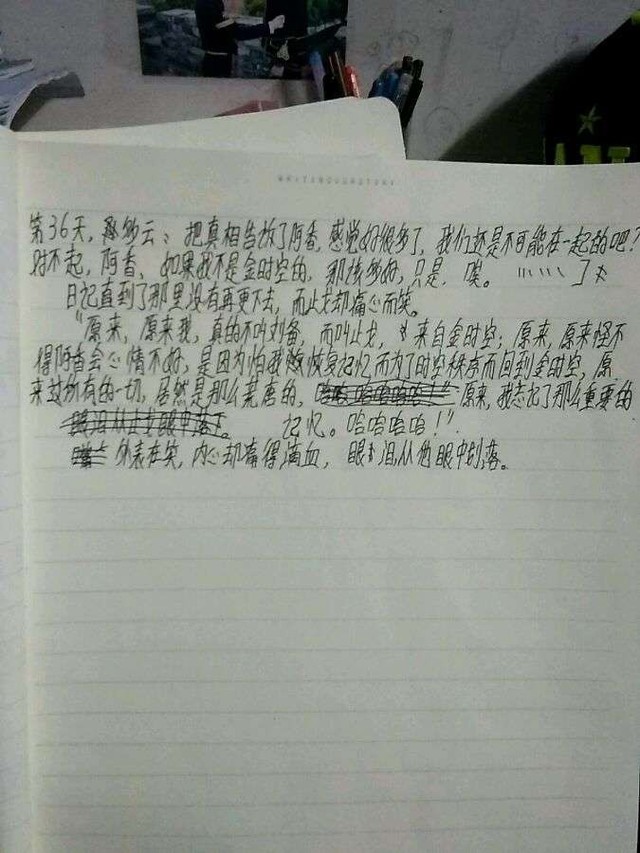 WRITINGYOURSTORY
第36天,多云、把真相告放了阿香,感觉好很多了,我们还是不可能在一起的吧?
对不起,阿香、如果我不是金时空的,那该多好,只是,唉。
日记直到了那里没有再更下去,而止戈却痛心而笑。
“原来,原来我,真的不叫刘备,而叫止戈,来自金时空;原来,原来怪不
得阿香会心情不好,是因为怕我恢复记忆而为了时空秩序而回到金时空,原
来过所有的一切,居然是那么荒唐的,原来,我忘记了那么重要的
记忆。哈哈哈哈!”
外表在笑,内心却痛得滴血,眼泪从他眼中划落。